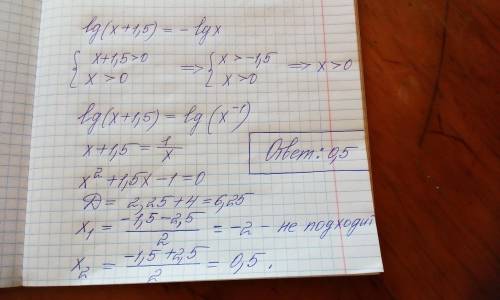 lg(x+1,5) = -lgx
{ x+1,5>0 ⇒ { x>-1,5 ⇒ x>0
{ x>0 { x>0
lg(x+1,5) = lg(x⁻¹)
x+1,5 = 1/x
Ответ: 0,5
x²+1,5x-1=0
Д = 2,25+4=6,25
x₁ = (-1,5-2,5)/2 = -2 - не подходит
x₂ = (-1,5+2,5)/2 = 0,5.